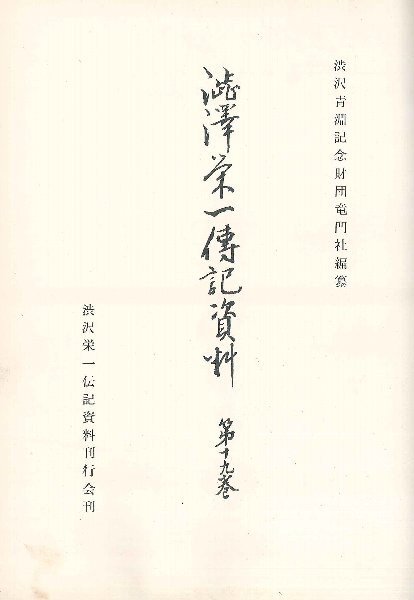 渋沢青淵記念財団竜門社編纂
澁澤栄一傳記資料 第十九巻
渋沢栄一伝記資料刊行会刊